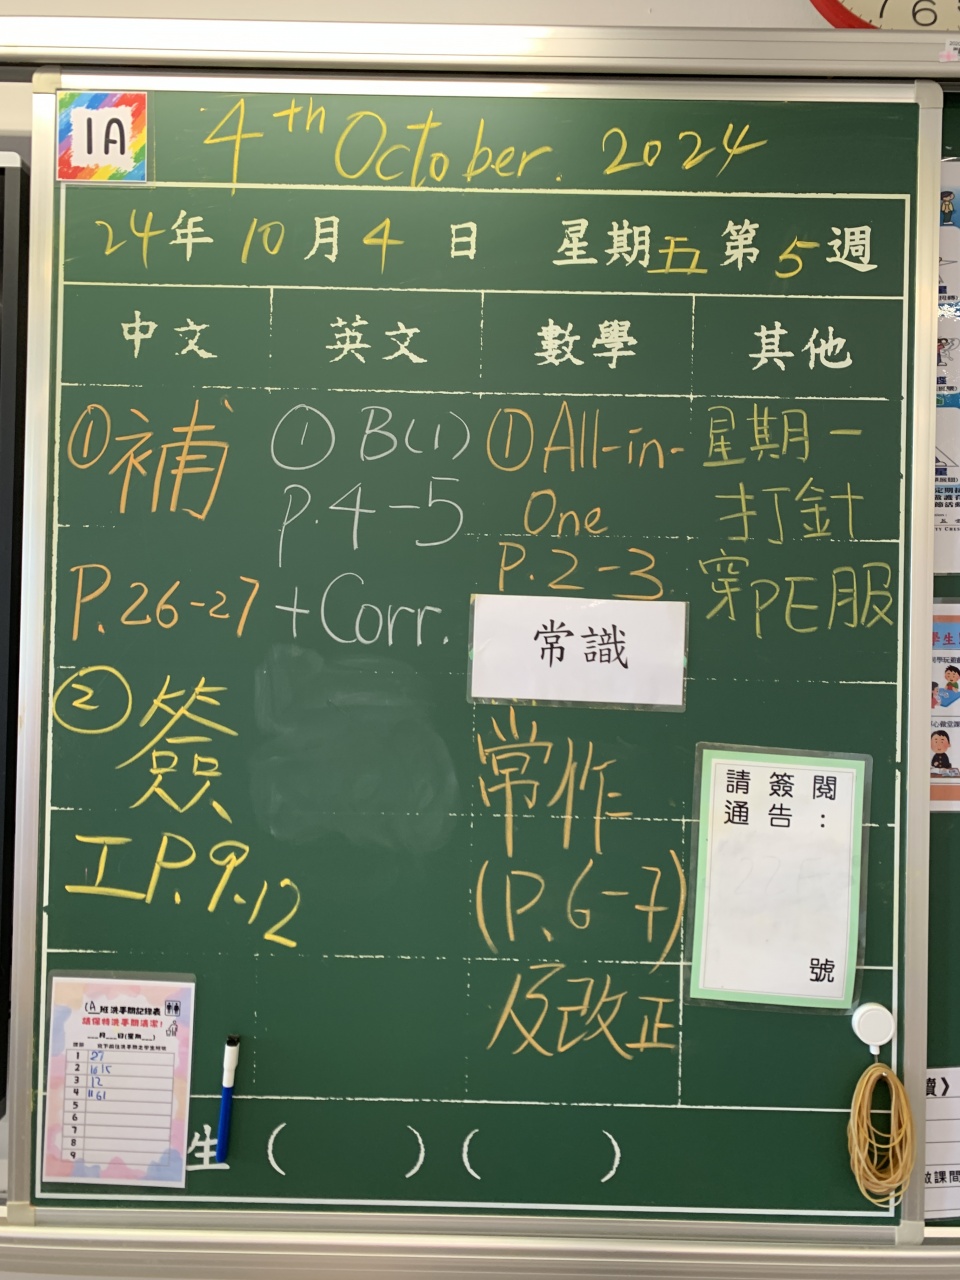 1A
4th October. 2024
24年10月4日 星期五 第5週
中文 英文 數學 其他
①補
P.26-27
②簽
工P.9.12
① B(1)
P.4-5
+Corr.
①All-in-
One
P.2-3
常識
常作
(P.6-7)
及改正
星期一
打針
穿PE服
請簽閱
通告:
號
1A班洗手間記錄表
請保持洗手間清潔!
__月__日(星期__)
1 27
2 16 15
3 12
4
5
6
7
8
9
生 ( ) ( )